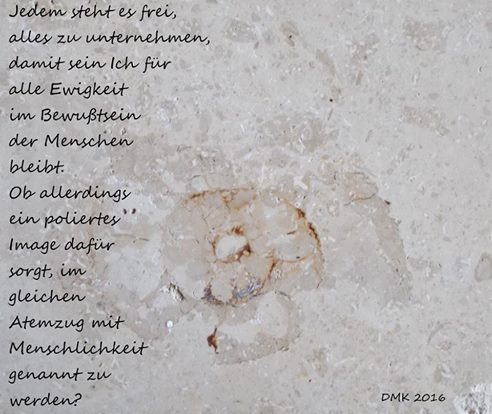 Jedem steht es frei,
alles zu unternehmen,
damit sein Ich für
alle Ewigkeit
im Bewußtsein
der Menschen
bleibt.
Ob allerdings
ein poliertes
Image dafür
sorgt, im
gleichen
Atemzug mit
Menschlichkeit
genannt zu
werden?
DMK 2016